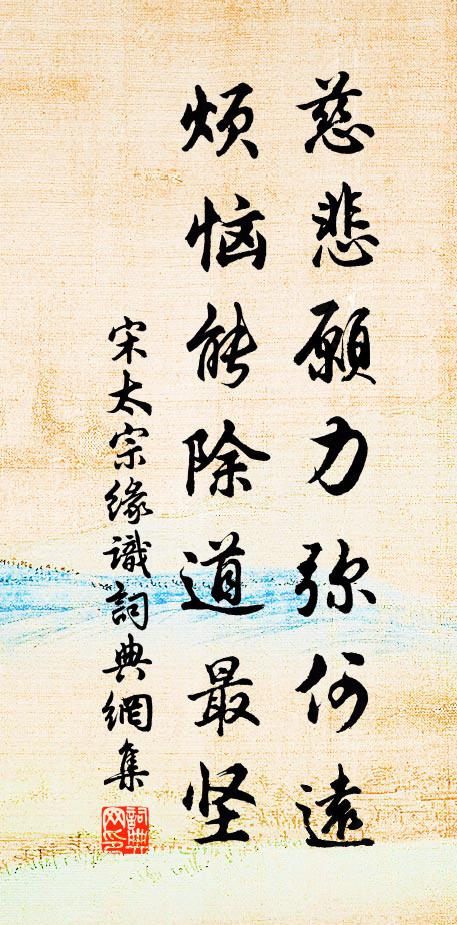 慈悲願力弥何遠
烦恼能除道最坚
宋太宗缘識詞典網集
詞典网印